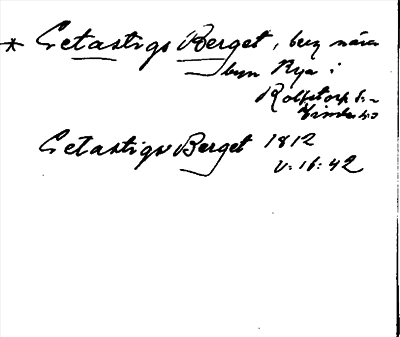 * Getastigs Berget, berg nära
byn Rya i
Rolfstorp s:n
Himble hd
Getastigs Berget 1812
v: 16: 42